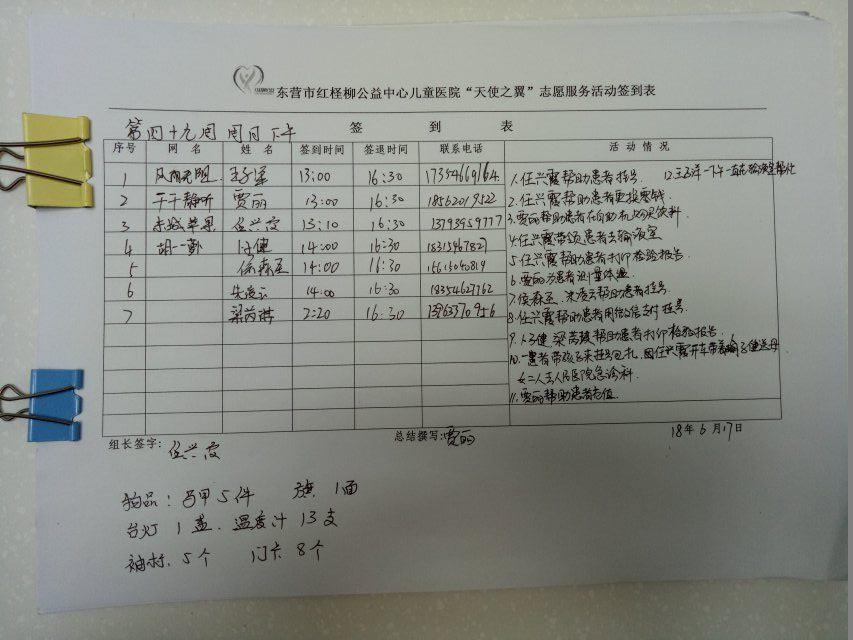 东营市红柽柳公益中心儿童医院“天使之翼”志愿服务活动签到表
第四十九周 周日下午
签 到 表
序号 网 名 姓 名 签到时间 签退时间 联系电话 活 动 情 况
1 13:00 16:30 17354669164
2 于千静听 贾丽 13:00 16:30 18562019522
3 赤城苹果 任兴霞 13:10 16:30 13793959777
4 胡一勤 14:00 16:30
5 徐森至 14:00 16:30
6 朱凌云 14:00 16:30 18354627762
7 梁茵祺 2:20 16:30
1.任兴霞帮助患者挂号.
2.任兴霞帮助患者更换零钱.
3.贾丽帮助患者在自动机购买饮料
4.任兴霞带领患者去输液室
5.任兴霞帮助患者打印检验报告.
6.贾丽为患者测量体温
7. 朱凌云帮助患者挂号.
8.任兴霞帮助患者用微信支付挂号.
9. 帮助患者打印检验报告.
10.一患者带孩子来挂号包扎,因任兴霞开车带着
女二人去人民医院急诊科.
11.贾丽帮助患者充值.
组长签字: 任兴霞 总结撰写:贾丽 18年6月17日
物品: 马甲5件 旗 1面
台灯 1盏. 温度计 13支
袖标. 5个 门卡 8个